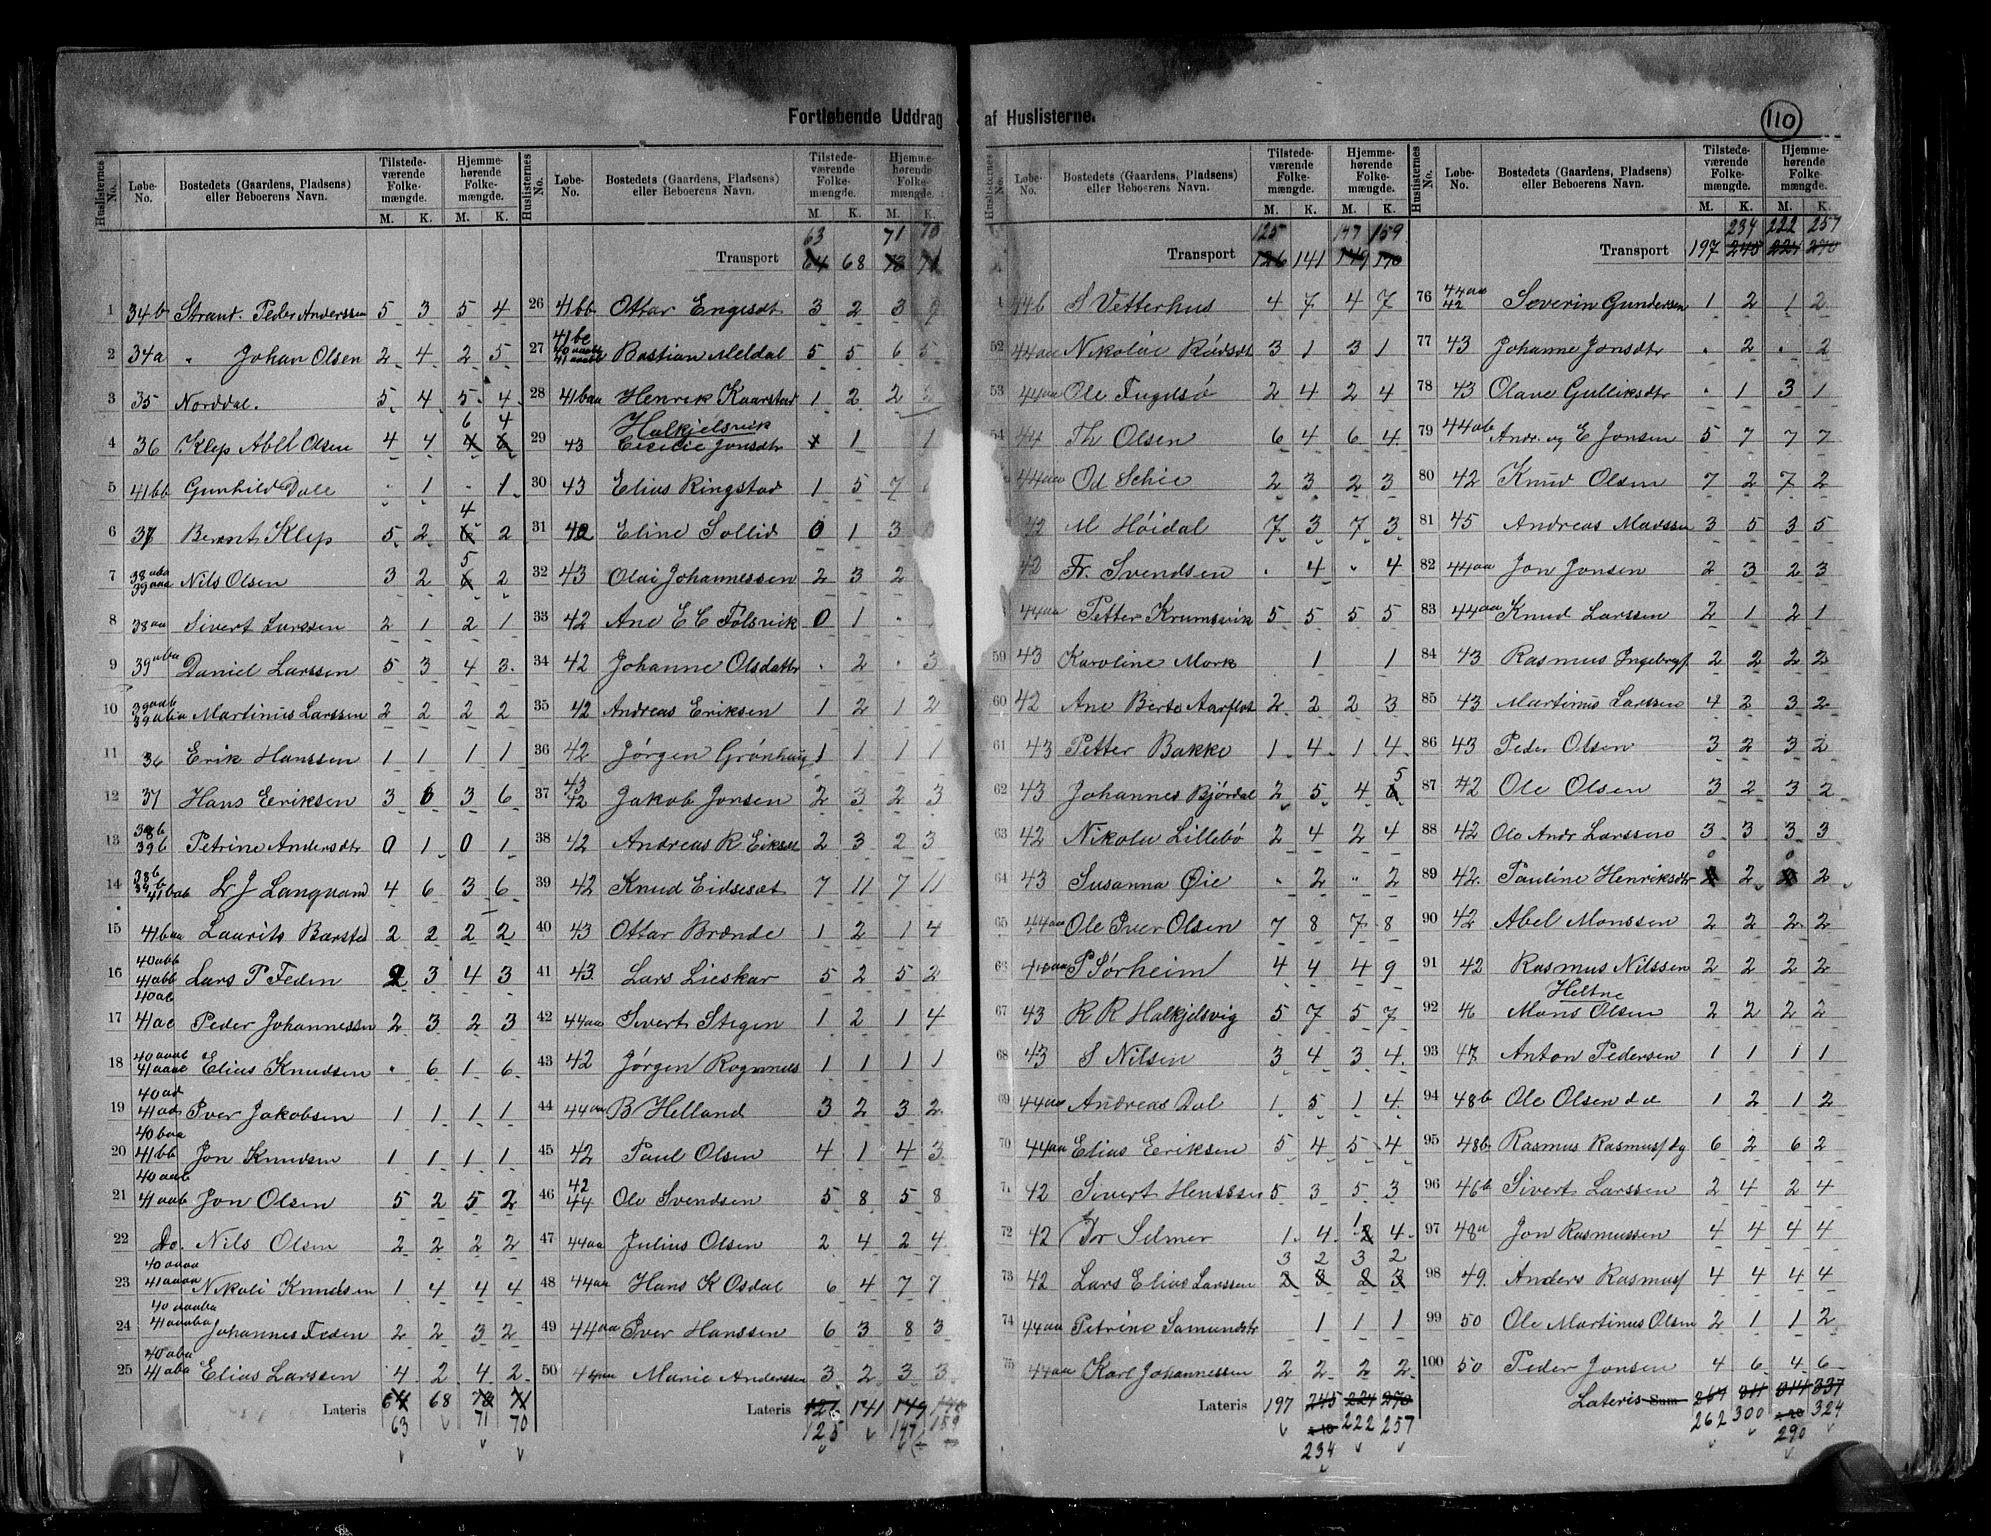 Fortløbende Uddrag af Huslisterne.
110
Huslisternes No. | Løbe-No. | Bostedets (Gaardens, Pladsens) eller Beboerens Navn. | Tilstedeværende Folkemængde. M. K. | Hjemmehørende Folkemængde. M. K.
1 34b Strand. Peder Anderssen 5 3 5 4
2 34a " Johan Olsen 2 4 2 5
3 35 Norddal. 5 4 5 4
4 36 Klep Abel Olsen 4 4 6 4
5 41bb Gunhild Dale . 1 . 1
6 37 Bernt Klep 5 2 4 2
7 38aba 39aaa Nils Olsen 3 2 5 2
8 38aa Sivert Larssen 2 1 2 1
9 39aba Daniel Larssen 5 3 4 3
10 39aab 39aba Martinus Larssen 2 2 2 2
11 36 Erik Hanssen 1 1 1 1
12 37 Hans Eriksen 3 6 3 6
13 38b 39b Petrine Andersdtr 0 1 0 1
14 38b 39b 41bab L J Langvand 4 6 3 6
15 41baa Laurits Barsted 2 2 2 2
16 40abb 41abb Lars P Feden 2 3 4 3
17 40ac 41ac Peder Johannessen 2 3 2 3
18 40aaab 41aaac Elias Knudsen . 6 1 6
19 40ad 41ad Iver Jakobsen 1 1 1 1
20 40baa 41bb Jon Knudsen 1 1 1 1
21 40aab 41aab Jon Olsen 5 2 5 2
22 Do. Nils Olsen 2 2 2 2
23 40aaaa 41aaaa Nikoli Knudsen 1 4 4 4
24 40aaaba 41aaaba Johannes Feden 2 2 3 2
25 40aba 41aba Elias Larssen 4 2 4 2
Lateris 64 68 78 71
63 71 70
Huslisternes No. | Løbe-No. | Bostedets (Gaardens, Pladsens) eller Beboerens Navn. | Tilstedeværende Folkemængde. M. K. | Hjemmehørende Folkemængde. M. K.
63 71 70
Transport 64 68 78 71
26 41bb Ottar Engesdt 3 2 3
27 Bastian Meldal 5 5 6 5
28 41baa Henrik Kaarstad 1 2 2
Halkjelsvik
29 43 Cecilie Jonsdtr 1 1
30 43 Elias Ringstad 1 5 7
31 42 Eline Sollid 0 1 3
32 43 Olai Johannessen 2 3 2
33 42 Ane E C Folsvik 0 1 .
34 42 Johanne Olsdattr . 2 . 3
35 42 Andreas Eriksen 1 2 1 2
36 42 Jørgen Grønhaug 1 1 1 1
37 43 42 Jakob Jonsen 2 3 2 3
38 42 Andreas R Eiksdt 2 3 2 3
39 42 Knud Eidseset 7 11 7 11
40 43 Ottar Brænde 1 2 1 4
41 43. Lars Lieskar 5 2 5 2
42 44aa Sivert Stegen 1 2 1 4
43 42 Jørgen Rognnæs 1 1 1 1
44 44aa B Helland 3 2 3 2
45 42 Paul Olsen 4 1 4 3
46 42 44 Ole Svendsen 5 8 5 8
47 44aa Julius Olsen 2 4 2 4
48 44aa Hans K Osdal 6 4 7 7
49 44aa Iver Hanssen 6 3 8 3
50 44aa Marie Anderssen 3 2 3 3
Lateris 126 141 149 170
125 147 159
Huslisternes No. | Løbe-No. | Bostedets (Gaardens, Pladsens) eller Beboerens Navn. | Tilstedeværende Folkemængde. M. K. | Hjemmehørende Folkemængde. M. K.
125 147 159
Transport 126 141 149 170
44b S Vetterhus 4 7 4 7
52 44aa Nikolai Rødsdt 3 1 3 1
53 44aa Ole Fugelsø 2 4 2 4
54 44 Th Olsen 6 4 6 4
44aa Od Schie 2 3 2 3
42 M Høidal 7 3 7 3
42 Fr. Svendsen . 4 . 4
44aa Petter Krumsvik 5 5 5 5
59 43 Karoline Mork 1 1
60 42 Ane Berte Aarflot 2 2 2 3
61 43 Petter Bakke 1 4 1 4
62 43 Johannes Bjørdal 2 5 4 5
63 42 Nikolai Lillebø 2 4 2 4
64 43 Susanna Øie . 2 " 2
65 44aa Ole Iver Olsen 7 8 7 8
66 44aa P Sørheim 4 4 4 9
67 43 R R Halkjelsvig 5 7 5 7
68 43 S Nilsen 3 4 3 4
69 44aa Andreas Dal 1 5 1 4
70 44aa Elias Eriksen 5 4 5 4
71 42 Sivert Henssen 5 3 5 3
72 42 Selmer 1 4 1 4
3 2 3 2
73 42 Lars Elias Larssen 2 3 2 3
74 44aa Petrine Samundtr 1 1 1
75 44aa Karl Johannessen 2 2 2 2
Lateris 197 245 224 270
222 257
234
Huslisternes No. | Løbe-No. | Bostedets (Gaardens, Pladsens) eller Beboerens Navn. | Tilstedeværende Folkemængde. M. K. | Hjemmehørende Folkemængde. M. K.
234 222 257
Transport 197 245 224 270
76 44aa 42 Severin Gundersen 1 2 1 2
77 43 Johanne Jonsdtr . 2 . 2
78 43 Olave Gulliksdtr . 1 3 1
79 44ab Andr. og E Jonsen 5 7 7 7
80 42 Knud Olsen 7 2 7 2
81 45 Andreas Madssen 3 5 3 5
82 44aa Jon Jonsen 2 3 2 3
83 44aa Knud Larssen 2 1 2 1
84 43 Rasmus Ingebrigt 2 2 2 2
85 43 Martinus Larssen 4 2 3 2
86 43 Peder Olsen 3 2 3 2
87 42 Ole Olsen 3 2 3 2
88 42 Ole Andr Larssen 3 3 3 3
89 42. Pauline Henriksdtr 0 2 0 2
90 42 Abel Monssen 2 2 2 2
91 42 Rasmus Nilssen 2 2 2 2
Heltne
92 46 Mons Olsen 2 2 2 2
93 47 Anton Pedersen 1 1 1 1
94 48b Ole Olsen d.æ 1 2 1 2
95 48b Rasmus Rasmus 6 2 6 2
96 46b Sivert Larssen 2 4 2 4
97 48a Jon Rasmussen 4 4 4 4
98 49. Anders Rasmus 4 4 4 4
99 50 Ole Martinus Olsen 2 1 1 2
100 50 Peder Jonsen 4 6 4 6
Lateris Sum 264 311 314 337
262 300 324
290